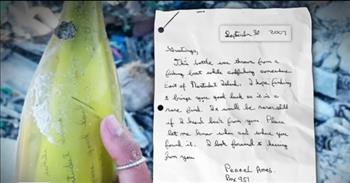 September 30 2007
Greetings,
This bottle was thrown from a
fishing boat while codfishing somewhere
East of Nantucket Island. I hope finding
it brings you good luck as it is a
rare find. It will be
if I hear back from you. Please
let me know when and where you
found it. I look forward to hearing
from you.
Ames
Box 951